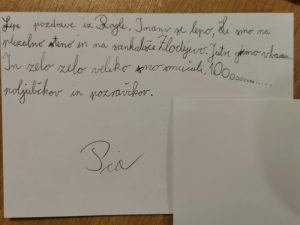 Lepe pozdrave iz Rogle. Imam se lepo, šli smo na
plezalno steno in na sankališče Zlodejevo. Jutri gremo
In zelo zelo veliko smo smučali. 10000
poljubčkov in pozdravčkov.
Pia